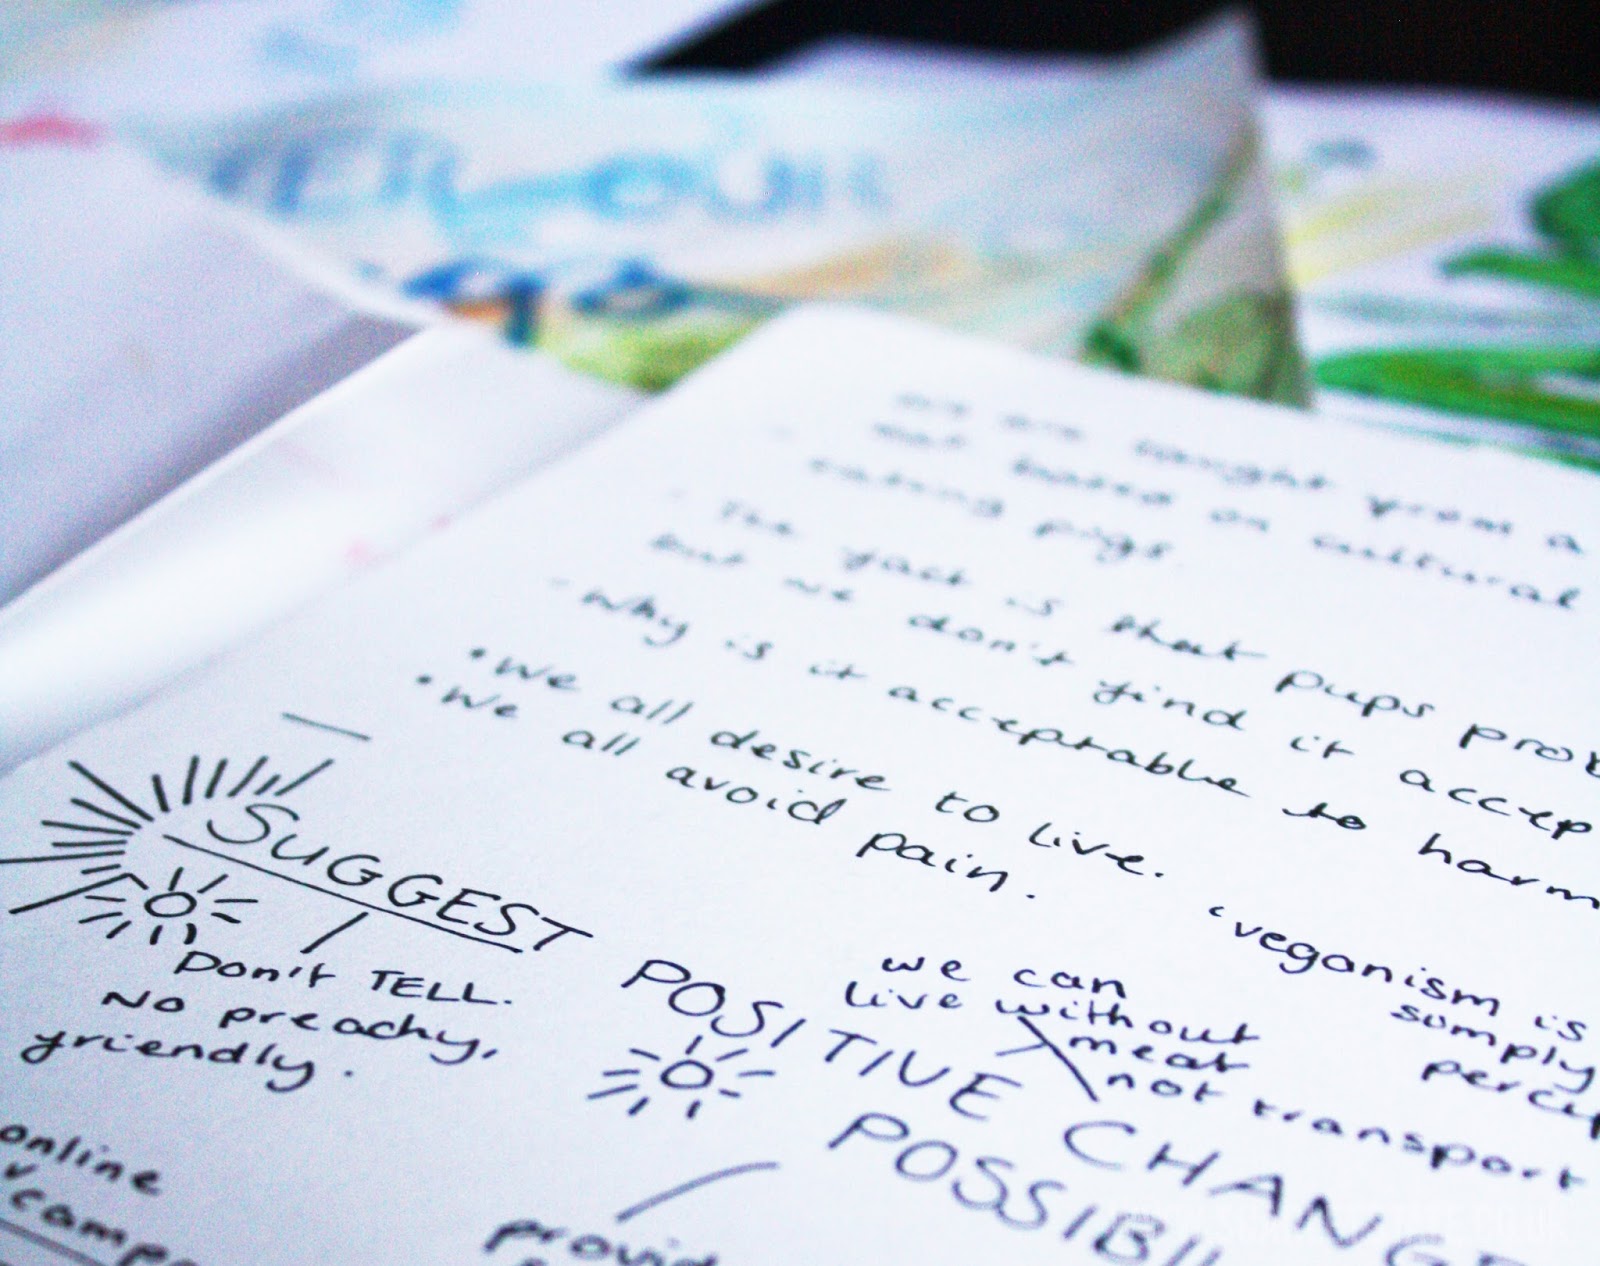 we are taught from a
not based on cultural
eating pigs
- The fact is that pups
but we don't find it accep
- Why is it acceptable to harm
• We all desire to live.
• We all avoid pain.
SUGGEST
Don't TELL.
No preachy,
friendly.
POSITIVE CHANGE
POSSIBI
we can
live without
meat
not transport
'veganism is
simply
online
camp
provid